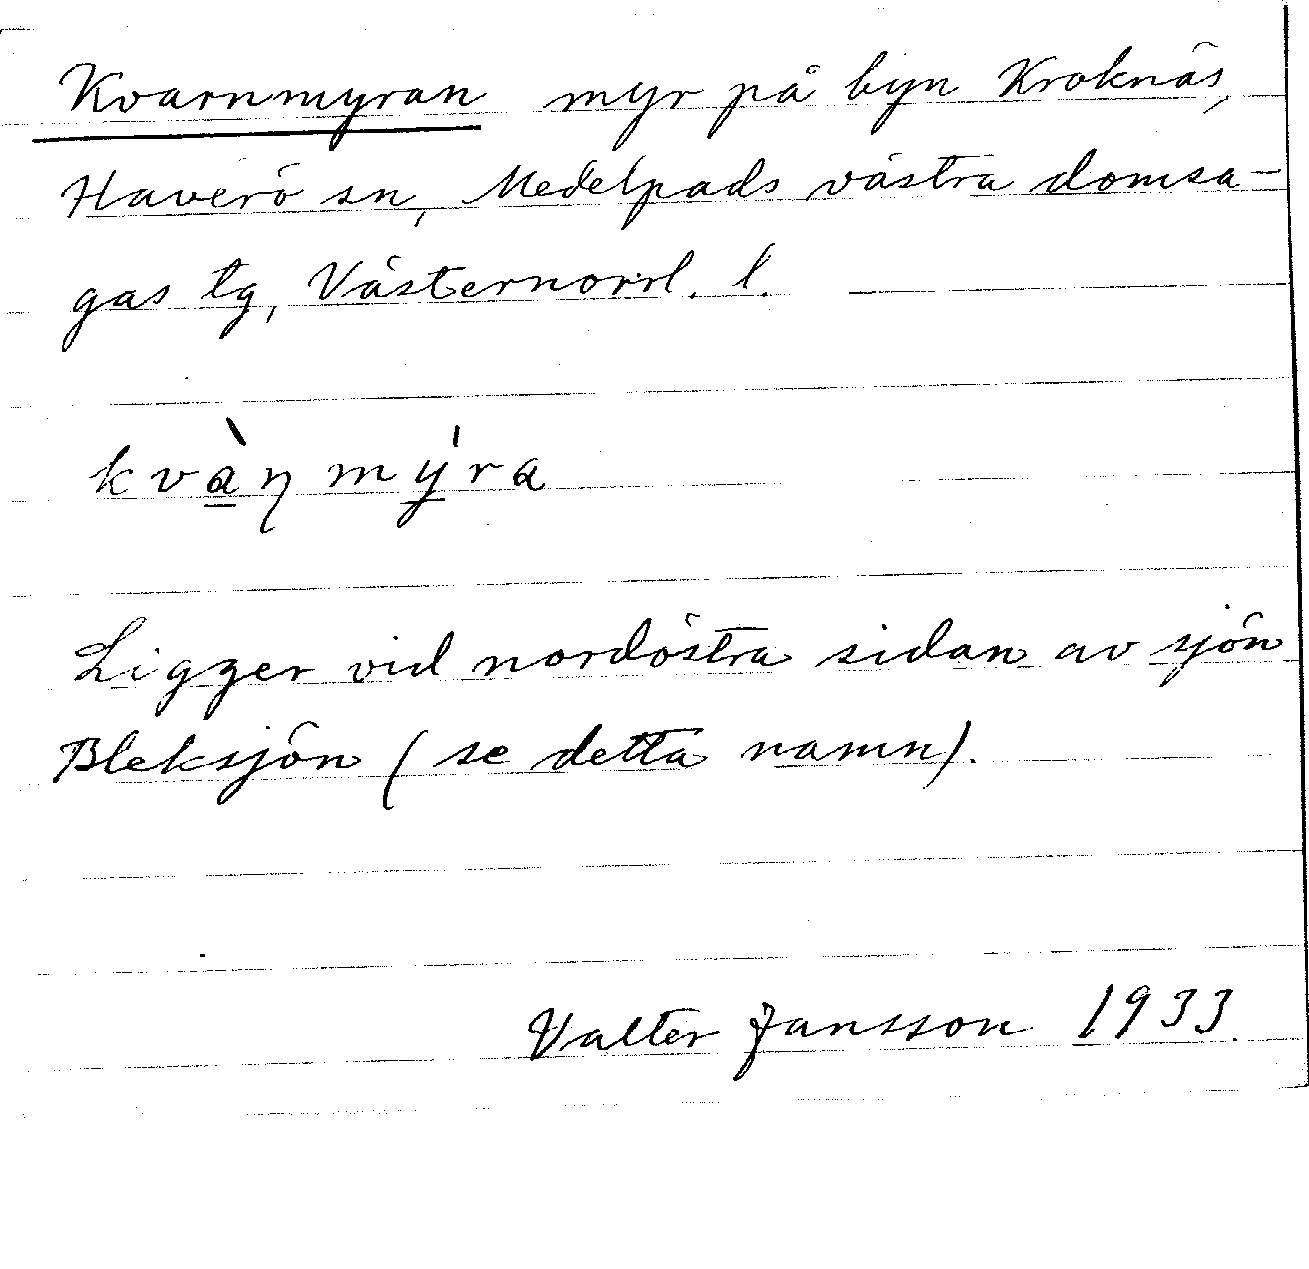 Kvarnmyran myr på byn Kroknäs,
Haverö sn, Medelpads västra domsa-
gas tg, Västernorrl. l.
kvàꞃmýra
Ligger vid nordöstra sidan av sjön
Bleksjön (se detta namn).
Valter Jansson 1933.